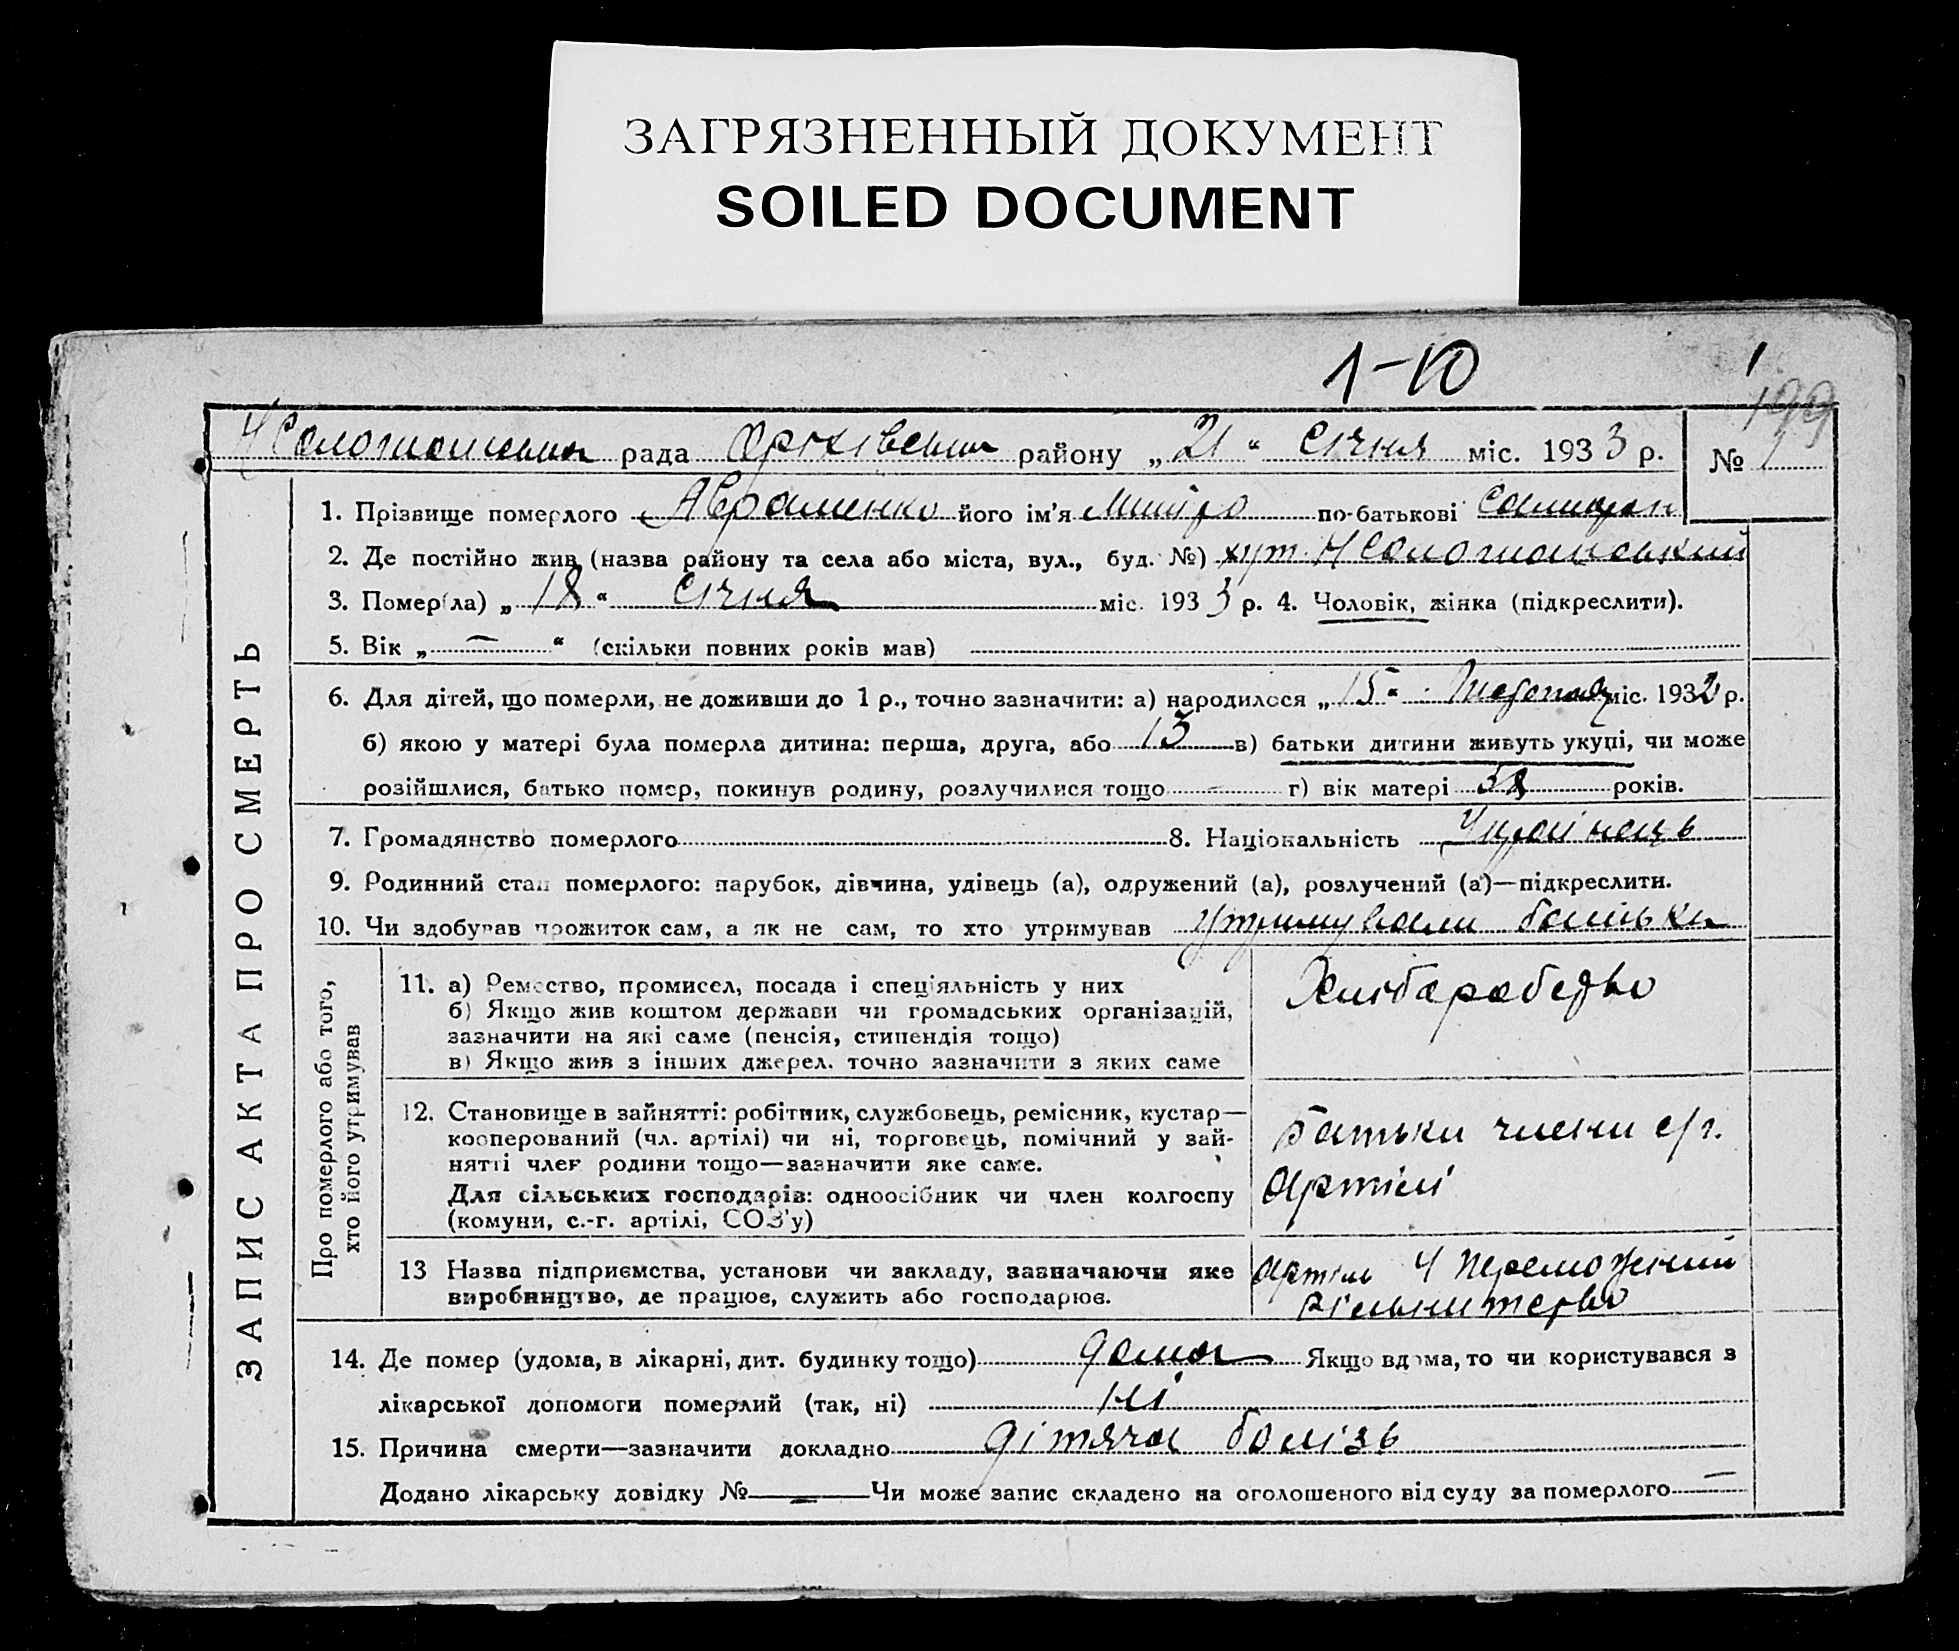 ЗАГРЯЗНЕННЫЙ ДОКУМЕНТ
SOILED DOCUMENT
1-10
1
199
рада Оріхівська району „21“ Січня міс. 1933 р. № 1
ЗАПИС АКТА ПРО СМЕРТЬ
1. Прізвище померлого Авраменко його ім'я Митро по-батькові
2. Де постійно жив (назва району та села або міста, вул., буд. №) хут.
3. Помер(ла) „18“ Січня міс. 1933 р. 4. Чоловік, жінка (підкреслити).
5. Вік „—“ (скільки повних років мав)
6. Для дітей, що померли, не доживши до 1 р., точно зазначити: а) народилося „15“ міс. 1932 р.
б) якою у матері була померла дитина: перша, друга, або 13 в) батьки дитини живуть укупі, чи може
розійшлися, батько помер, покинув родину, розлучилися тощо — г) вік матері 38 років.
7. Громадянство померлого 8. Національність Українець
9. Родинний стан померлого: парубок, дівчина, удівець (а), одружений (а), розлучений (а)—підкреслити.
10. Чи здобував прожиток сам, а як не сам, то хто утримував утримували батьки
Про померлого або того,
хто його утримував
11. а) Ремество, промисел, посада і спеціяльність у них
б) Якщо жив коштом держави чи громадських організацій,
зазначити на які саме (пенсія, стипендія тощо)
в) Якщо жив з інших джерел. точно зазначити з яких саме
Хліборобство
12. Становище в зайнятті: робітник, службовець, ремісник, кустар—
кооперований (чл. артілі) чи ні, торговець, помічний у зай-
нятті член родини тощо—зазначити яке саме.
Для сільських господарів: одноосібник чи член колгоспу
(комуни, с.-г. артілі, СОЗ'у)
Батьки члени с/г.
артілі
13 Назва підприємства, установи чи закладу, зазначаючи яке
виробництво, де працює, служить або господарює.
Артіль Ч Переможний
рільництво
14. Де помер (удома, в лікарні, дит. будинку тощо) дома Якщо вдома, то чи користувався з
лікарської допомоги померлий (так, ні) ні
15. Причина смерти—зазначити докладно дітяча болізь
Додано лікарську довідку № — Чи може запис складено на оголошеного від суду за померлого —